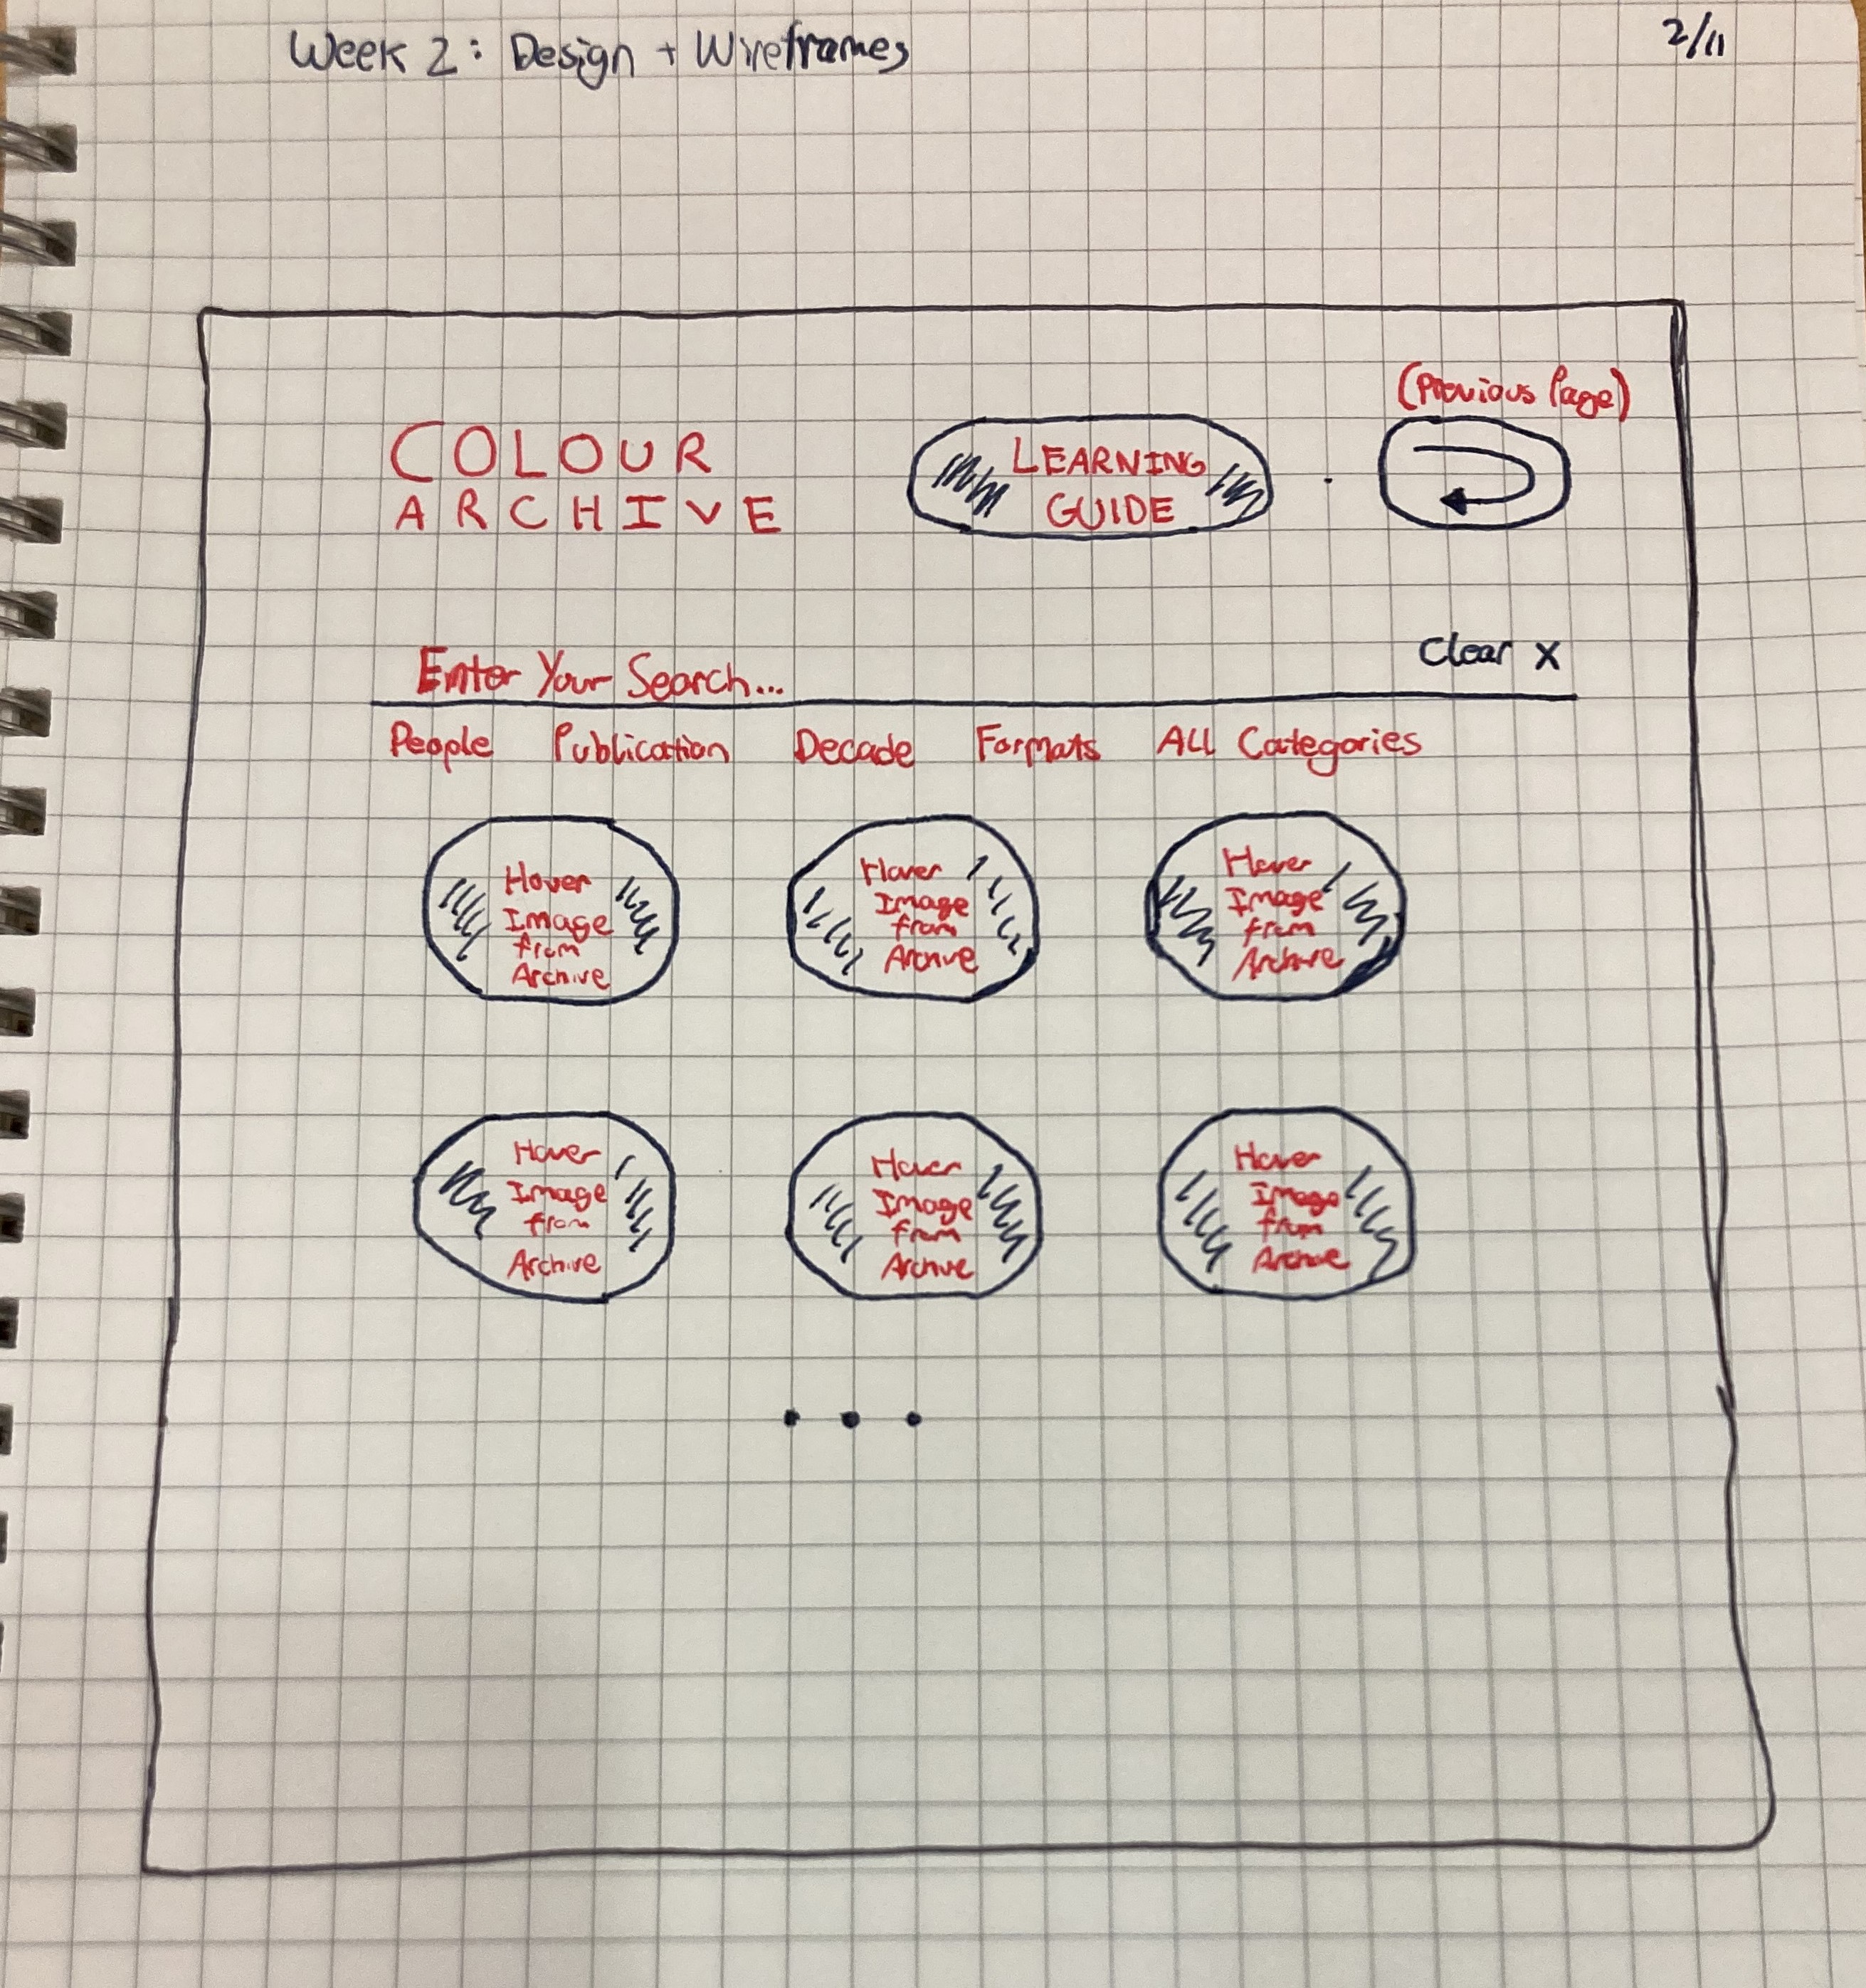 Week 2: Design + Wireframes
2/11
(Previous Page)
COLOUR
ARCHIVE
LEARNING
GUIDE
Enter Your Search...
Clear X
People Publication Decade Formats All Categories
Hover
Image
from
Archive
Hover
Image
from
Archive
Hover
Image
from
Archive
Hover
Image
from
Archive
Hover
Image
from
Archive
Hover
Image
from
Archive